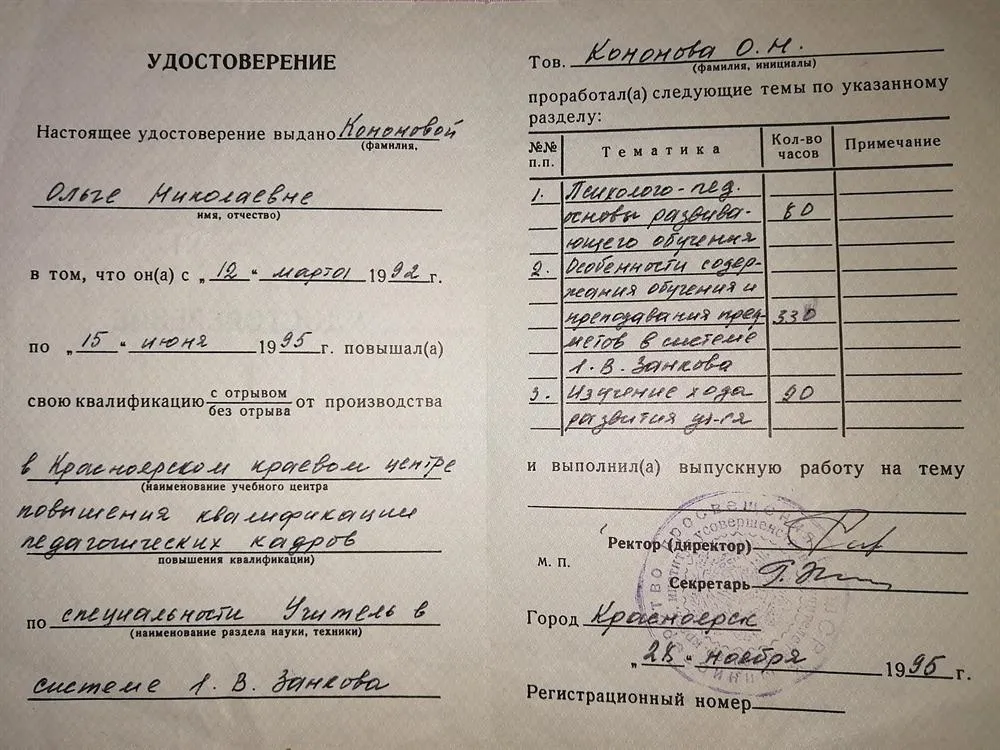 УДОСТОВЕРЕНИЕ
Настоящее удостоверение выдано Кононовой
(фамилия,
Ольге Николаевне
имя, отчество)
в том, что он(а) с „12“ марта 1992 г.
по „15“ июня 1995 г. повышал(а)
свою квалификацию с отрывом
без отрыва от производства
в Красноярском краевом центре
(наименование учебного центра
повышения квалификации
педагогических кадров
повышения квалификации)
по специальности Учитель в
(наименование раздела науки, техники)
системе Л. В. Занкова
Тов. Кононова О. Н.
(фамилия, инициалы)
проработал(а) следующие темы по указанному
разделу:
№№ п.п. Тематика Кол-во часов Примечание
1. Психолого-пед.
основы развива- 80
ющего обучения
2. Особенности содер-
жания обучения и
преподавания пред- 330
метов в системе
Л. В. Занкова
3. Изучение хода 90
развития уч-ся
и выполнил(а) выпускную работу на тему
Ректор (директор)
М. П.
Секретарь
Город Красноярск
„28“ ноября 1995 г.
Регистрационный номер